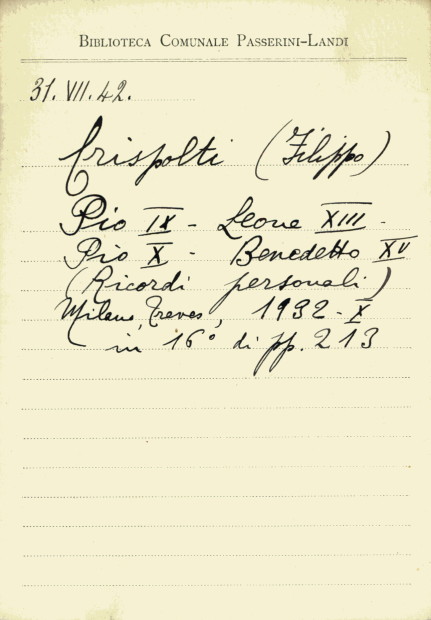 BIBLIOTECA COMUNALE PASSERINI-LANDI
31.VII.42.
Crispolti (Filippo)
Pio IX - Leone XIII -
Pio X - Benedetto XV
(Ricordi personali)
Milano, Treves, 1932-X
in 16° di pp. 213